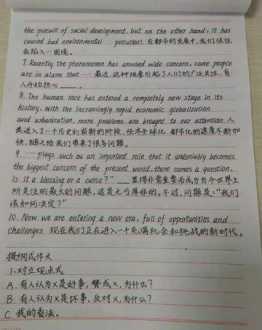 the pursuit of social development, but on the other hand, it has
caused bad environmental pollution. 在都市的发展中,我们往往
会陷入一困境。
7. Recently the phenomenon has aroused wide concern, some people
are in alarm that ... 最近,这种现象引起了人们的广泛关注,有
人开始担心____。
8. The human race has entered a completely new stage in its
history, with the increasingly rapid economic globalization
and urbanization, more problems are brought to our attention. 人
类进入了一个历史的崭新的阶段,经济全球化、都市化的速度不断加
快,随之给我们带来了很多问题。
9. ___ plays such an important role that it undeniably becomes
the biggest concern of the present world, there comes a question,
Is it a blessing or a curse?" ___ 显得非常重要而成为当今世界上
所关注的最大的问题,这是无可厚非的。不过,问题是:"我们
该如何决定?"
10. Now we are entering a new era, full of opportunities and
challenges. 现在我们正在进入一个充满机会和挑战的新时代。
提纲式作文
1. 对立观点式
A. 有人认为X是好事,赞成X,为什么?
B. 有人认为X是坏事,反对X,为什么?
C. 我的看法。